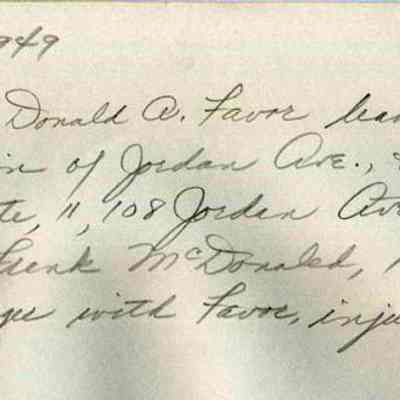 949
Donald A. Favor
of Jordan Ave.,
11,108 Jordan Ave
McDonald,
with Favor, inju